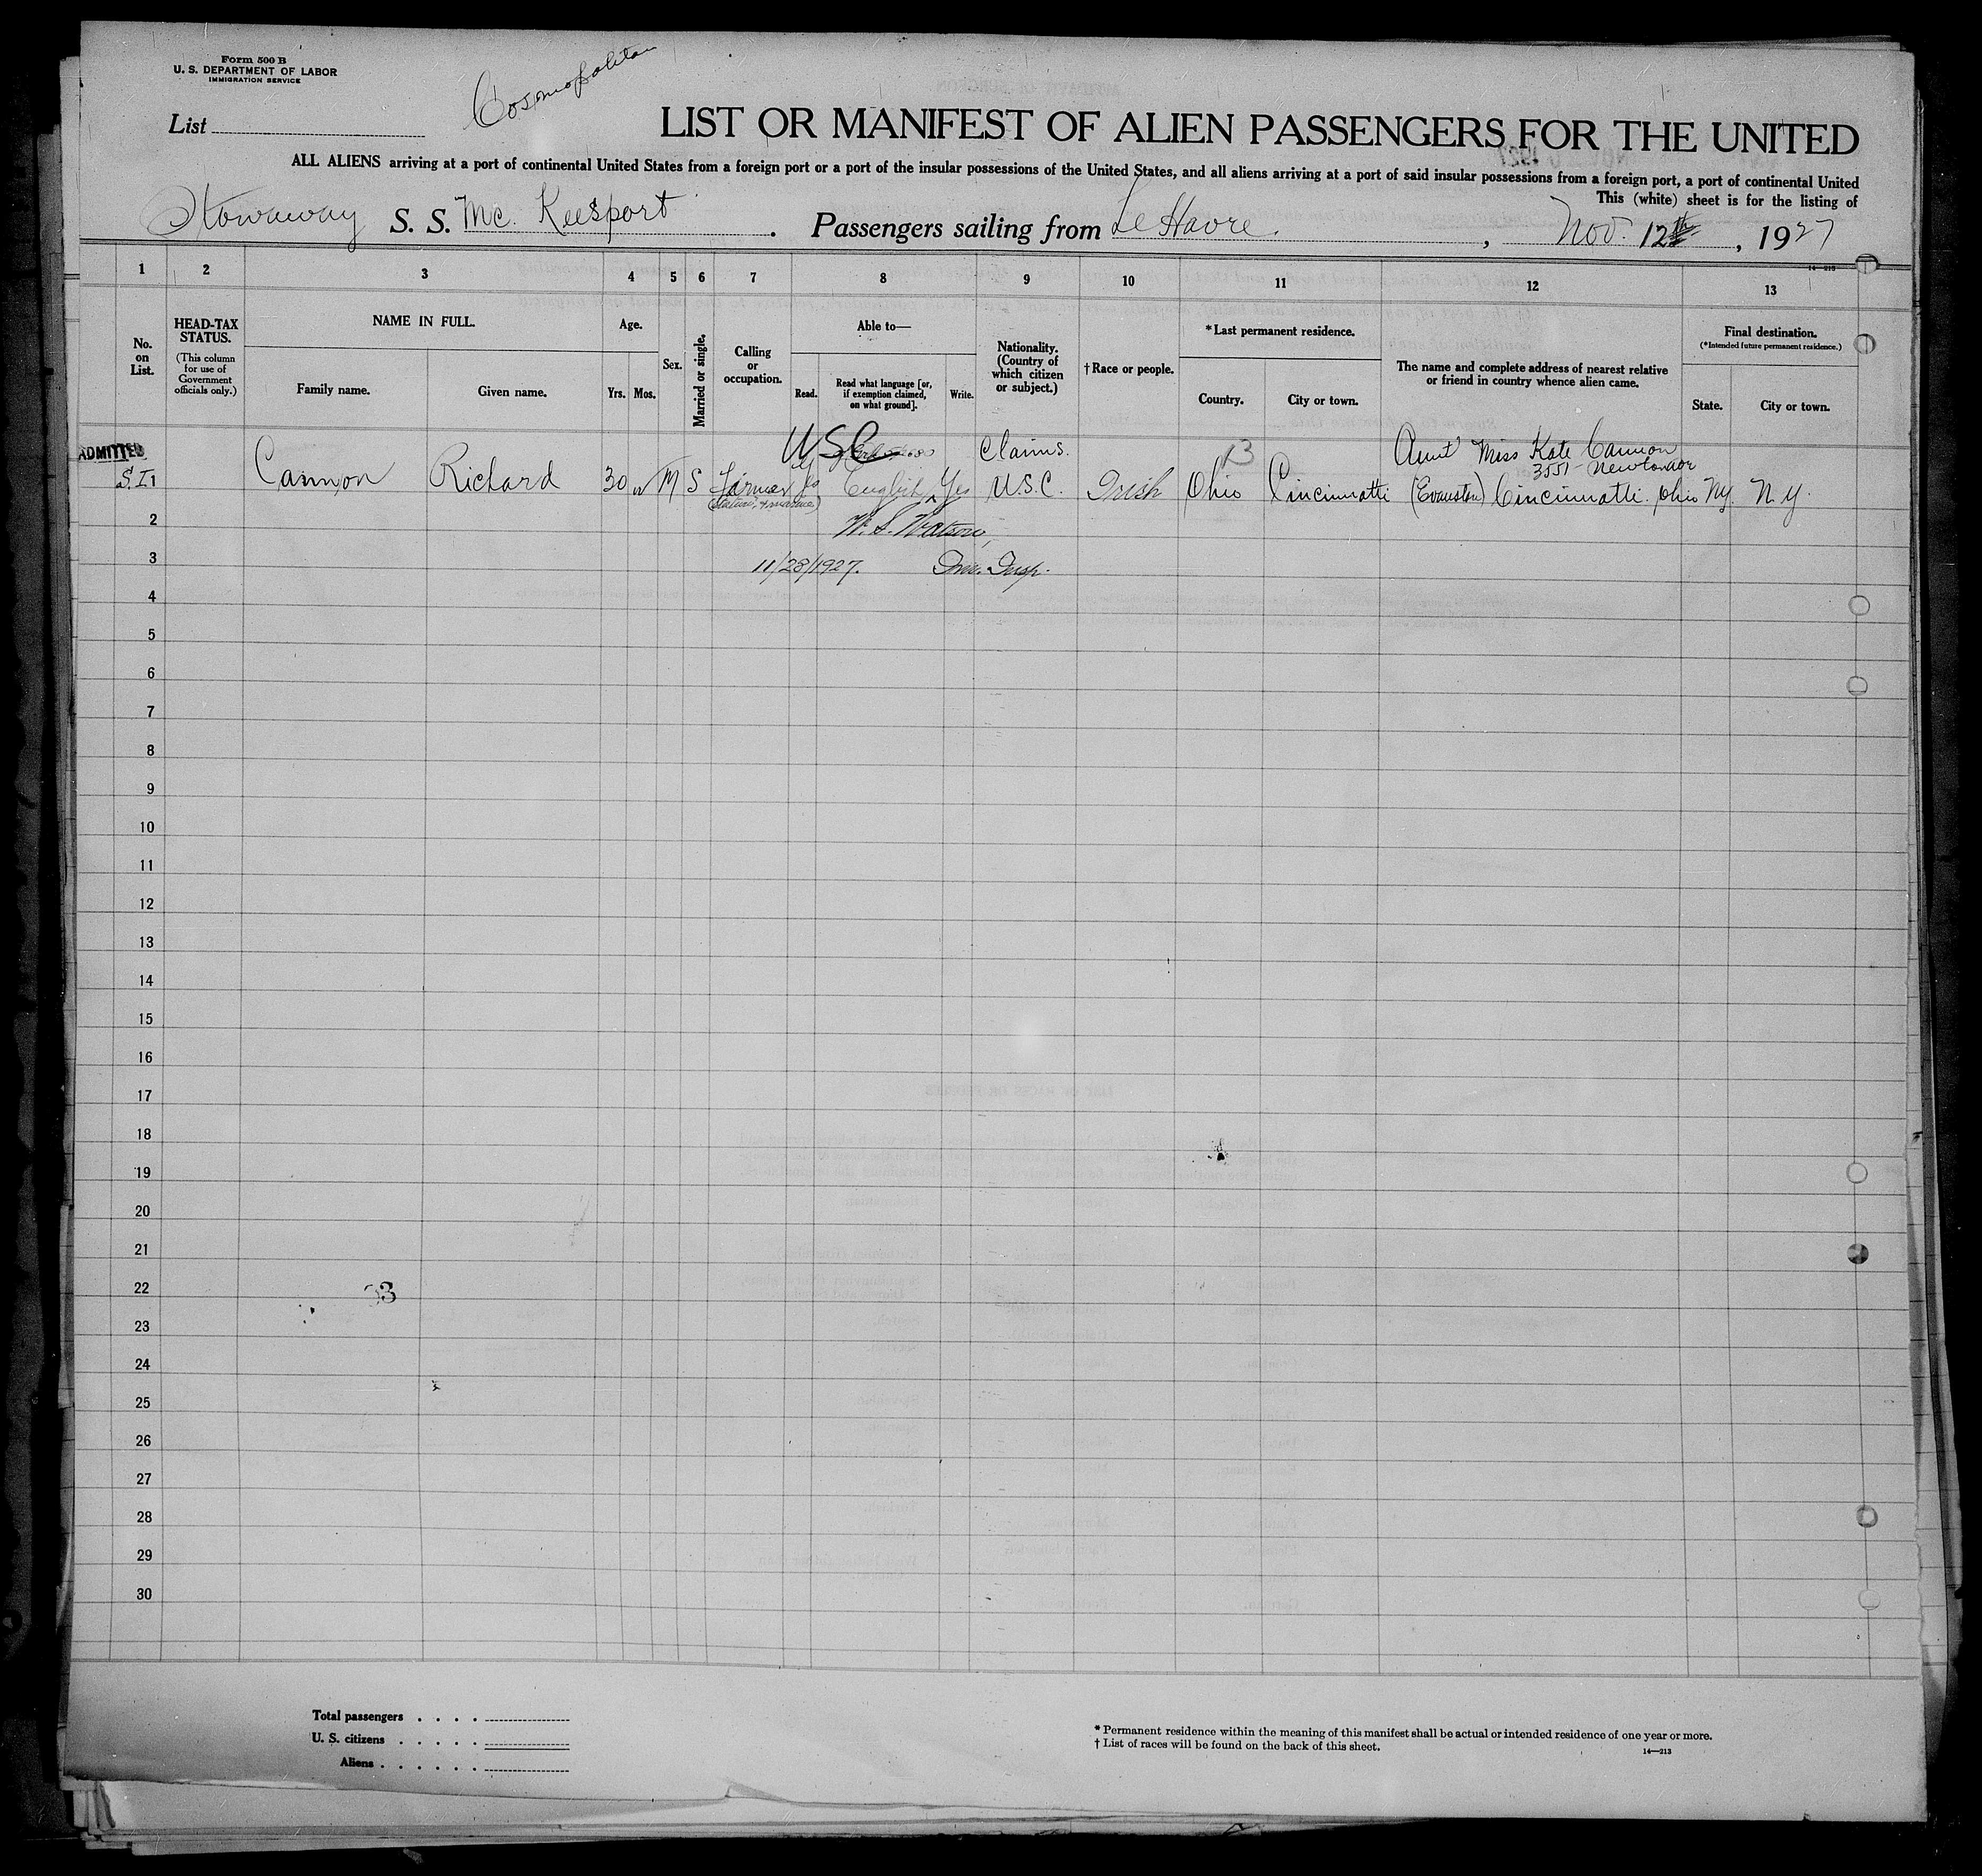 Form 500 B
U. S. DEPARTMENT OF LABOR
IMMIGRATION SERVICE
Cosmopolitan
List
LIST OR MANIFEST OF ALIEN PASSENGERS FOR THE UNITED
ALL ALIENS arriving at a port of continental United States from a foreign port or a port of the insular possessions of the United States, and all aliens arriving at a port of said insular possessions from a foreign port, a port of continental United
This (white) sheet is for the listing of
Stowaway S. S. Mc. Keesport. Passengers sailing from Le Havre., Nov. 12th, 1927
14—213
1 2 3 4 5 6 7 8 9 10 11 12 13
No. on List.
HEAD-TAX STATUS.
(This column for use of Government officials only.)
NAME IN FULL.
Family name. Given name.
Age.
Yrs. Mos.
Sex.
Married or single.
Calling or occupation.
Able to—
Read. Read what language [or, if exemption claimed, on what ground]. Write.
Nationality. (Country of which citizen or subject.)
†Race or people.
*Last permanent residence.
Country. City or town.
The name and complete address of nearest relative or friend in country whence alien came.
Final destination.
(*Intended future permanent residence.)
State. City or town.
ADMITTED
USC Claims. 13 Aunt Miss Kate Cannon
3551
S.I. 1 Cannon Richard 30 M S Farmer Yes English Yes U.S.C. Irish Ohio Cincinnatti (Evanston) Cincinnatti. Ohio NY. N.Y.
2 W. S. Watson,
3 11/28/1927. Imm. Insp.
4
5
6
7
8
9
10
11
12
13
14
15
16
17
18
19
20
21
22
23
24
25
26
27
28
29
30
Total passengers . . . .
U. S. citizens . . . . .
Aliens . . . . . .
* Permanent residence within the meaning of this manifest shall be actual or intended residence of one year or more.
† List of races will be found on the back of this sheet.
14—213